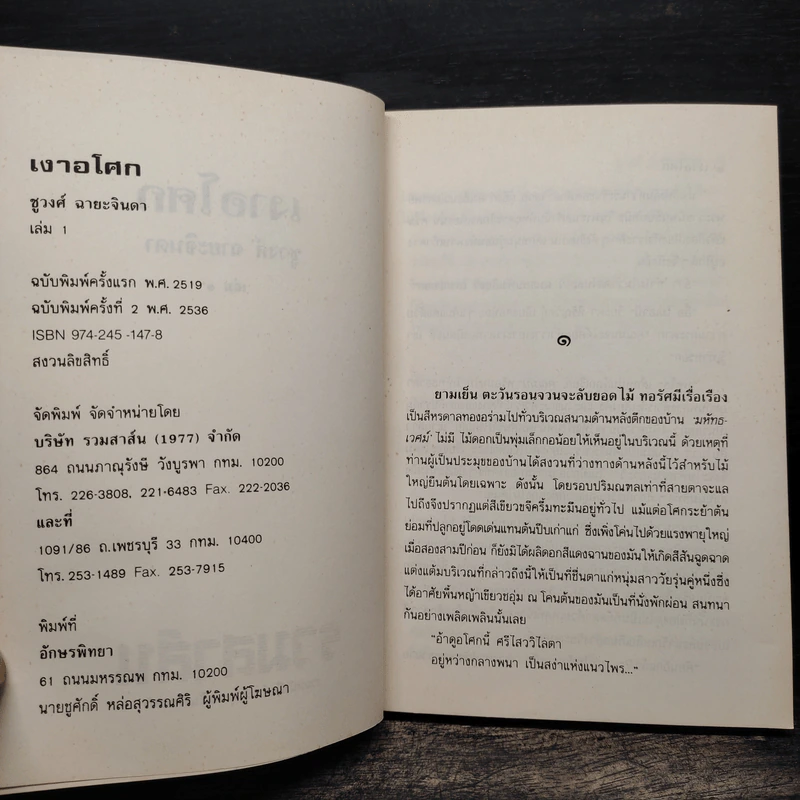 เงาอโศก
ชูวงศ์ ฉายะจินดา
เล่ม 1
ฉบับพิมพ์ครั้งแรก พ.ศ. 2519
ฉบับพิมพ์ครั้งที่ 2 พ.ศ. 2536
ISBN 974-245 -147-8
สงวนลิขสิทธิ์
จัดพิมพ์ จัดจำหน่ายโดย
บริษัท รวมสาส์น (1977) จำกัด
864 ถนนภาณุรังษี วังบูรพา กทม. 10200
โทร. 226-3808, 221-6483 Fax. 222-2036
และที่
1091/86 ถ.เพชรบุรี 33 กทม. 10400
โทร. 253-1489 Fax. 253-7915
พิมพ์ที่
อักษรพิทยา
61 ถนนมหรรณพ กทม. 10200
นายชูศักดิ์ หล่อสุวรรณศิริ ผู้พิมพ์ผู้โฆษณา
๑
ยามเย็น ตะวันรอนจวนจะลับยอดไม้ ทอรัศมีเรื่อเรือง
เป็นสีหรดาลทองอร่ามไปทั่วบริเวณสนามด้านหลังตึกของบ้าน 'มหัทธ-
เวศม์' ไม่มี ไม้ดอกเป็นพุ่มเล็กกอน้อยให้เห็นอยู่ในบริเวณนี้ ด้วยเหตุที่
ท่านผู้เป็นประมุขของบ้านได้สงวนที่ว่างทางด้านหลังนี้ไว้สำหรับไม้
ใหญ่ยืนต้นโดยเฉพาะ ดังนั้น โดยรอบปริมณฑลเท่าที่สายตาจะแล
ไปถึงจึงปรากฏแต่สีเขียวขจีครึ้มทะมึนอยู่ทั่วไป แม้แต่อโศกระย้าต้น
ย่อมที่ปลูกอยู่โดดเด่นแทนต้นปีบเก่าแก่ ซึ่งเพิ่งโค่นไปด้วยแรงพายุใหญ่
เมื่อสองสามปีก่อน ก็ยังมิได้ผลิดอกสีแดงฉานของมันให้เกิดสีสันฉูดฉาด
แต่งแต้มบริเวณที่กล่าวถึงนี้ให้เป็นที่ชื่นตาแก่หนุ่มสาววัยรุ่นคู่หนึ่งซึ่ง
ได้อาศัยพื้นหญ้าเขียวชอุ่ม ณ โคนต้นของมันเป็นที่นั่งพักผ่อน สนทนา
กันอย่างเพลิดเพลินนั้นเลย
"อ้าดูอโศกนี้ ศรีไสววิไลตา
อยู่หว่างกลางพนา เป็นสง่าแห่งแนวไพร..."